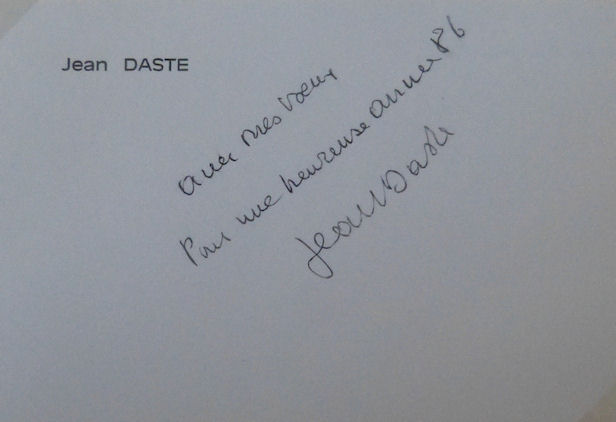 Jean DASTE
avec mes voeux
Pour une heureuse année 86
Jean Daste